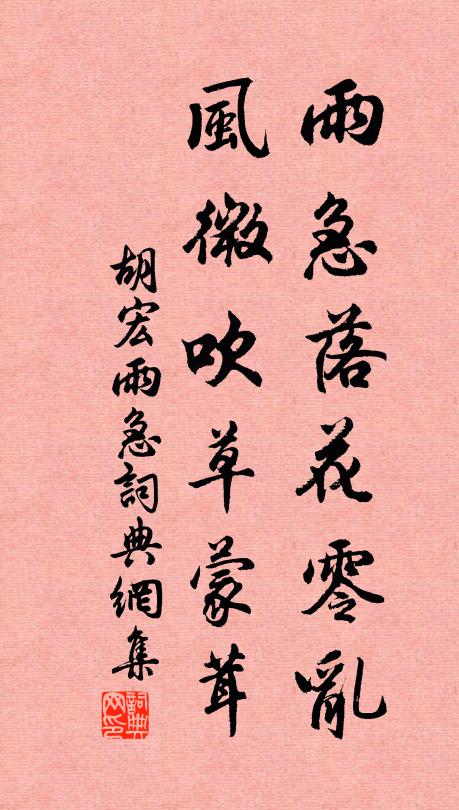 雨急落花零亂
風微吹草蒙茸
胡宏雨急詞典網集
詞典网印